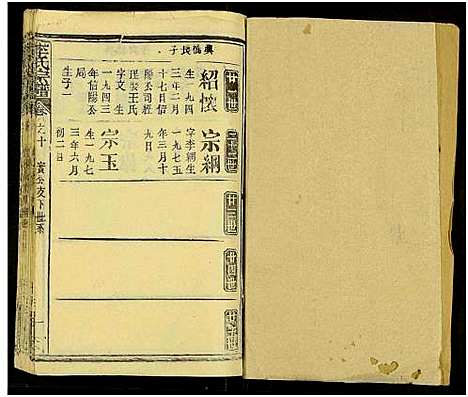 興鴻長子
廿一世
紹懷
生一九四
三年二月
十七日信
陽公司經
理公王氏
字文生
一九四三
年信陽公
局
生子一
廿二世
宗綱
字季綱生
一九七五
年三月十
九日
宗玉
生一九七
三年六月
初二日
廿三世
廿四世
廿五世
氏宗譜
卷之十
公支下世系